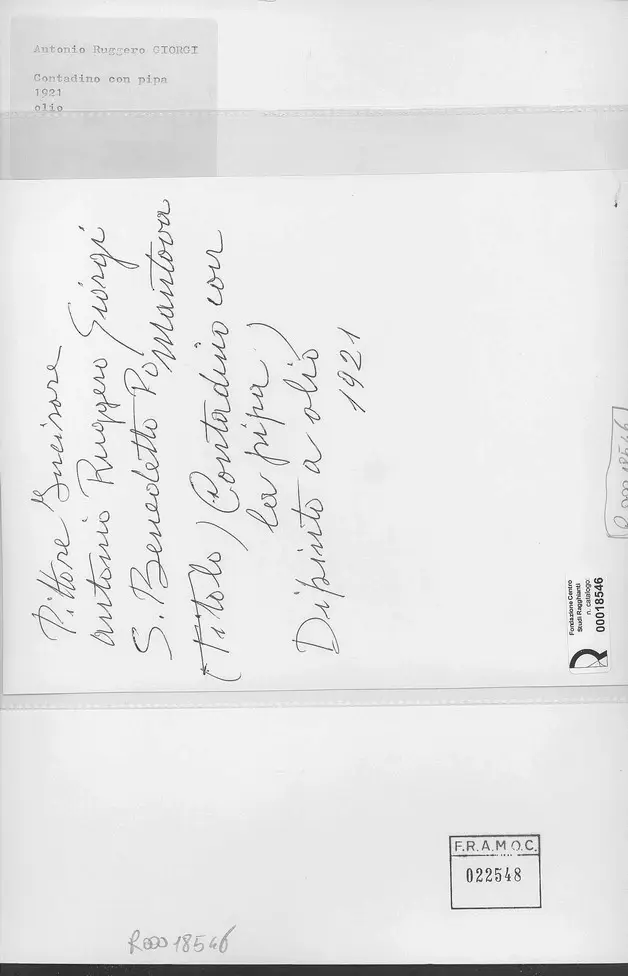 Antonio Ruggero GIORGI
Contadino con pipa
1921
olio
Pittore Incisore
Antonio Ruggero Giorgi
S. Benedetto Po Mantova
(Titolo) Contadino con
la pipa)
Dipinto a olio
1921
R 000 18546
Fondazione Centro
Studi Ragghianti
n. catalogo:
00018546
F.R.A.M.O.C.
022548
R00018546